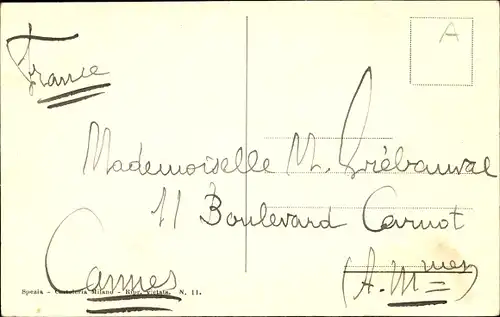 France
A
Mademoiselle M. Griébauval
11 Boulevard Carnot
Cannes
(A. Mmes)
Spezia - Cartoleria Milano - Ripr. vietata. N. 11.